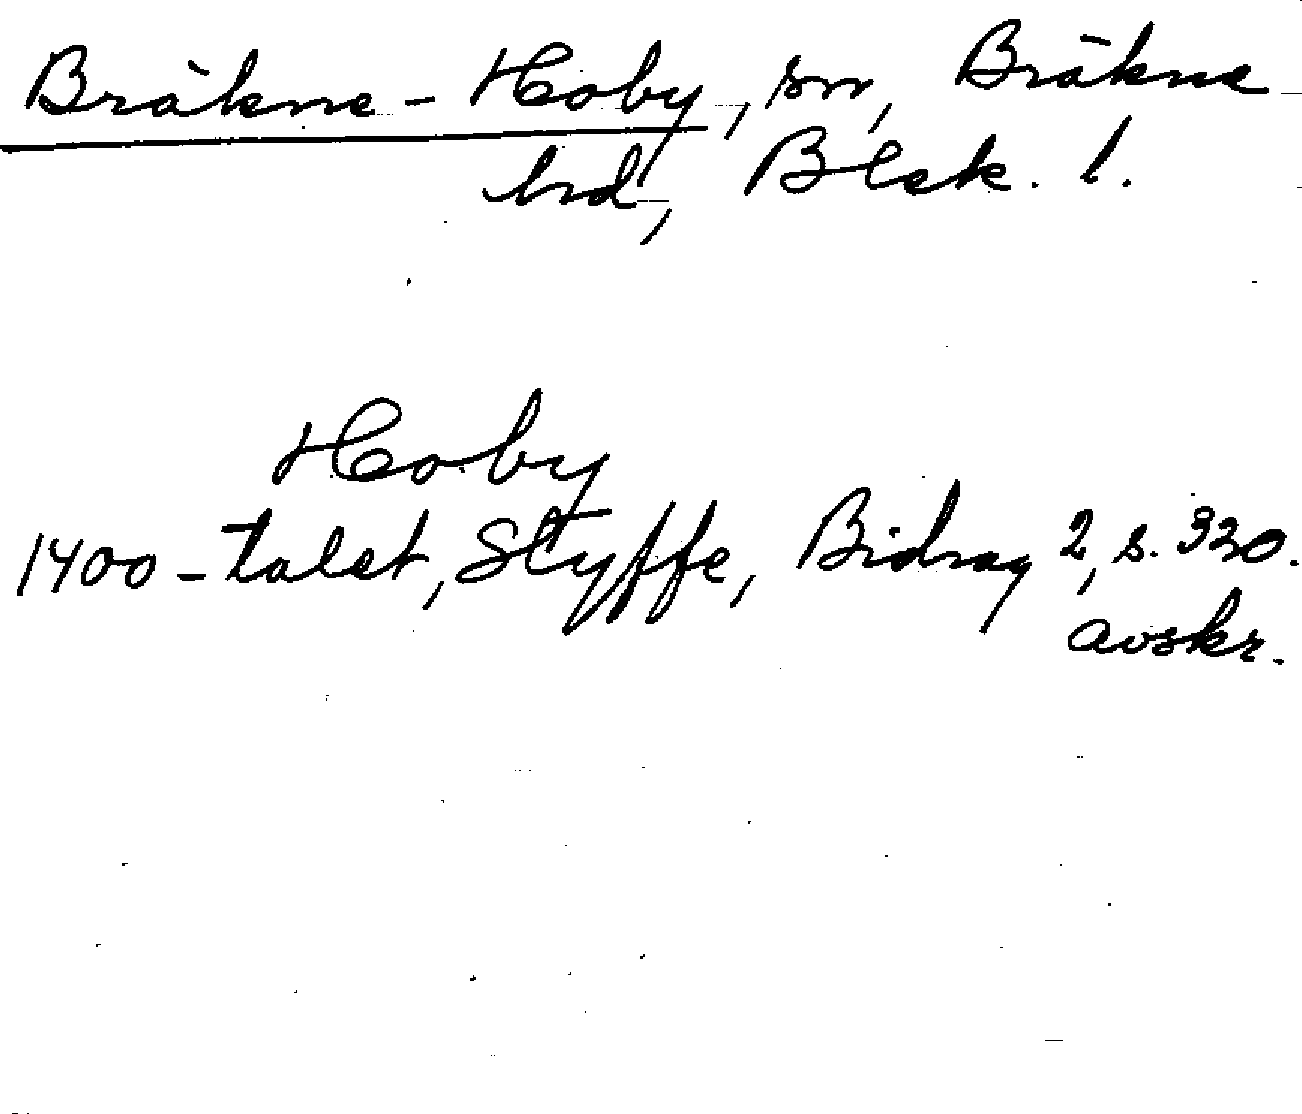 Bräkne-Hoby, sn, Bräkne
hd, Blek. l.
Hoby
1400-talet, Styffe, Bidrag 2, s. 320.
avskr.